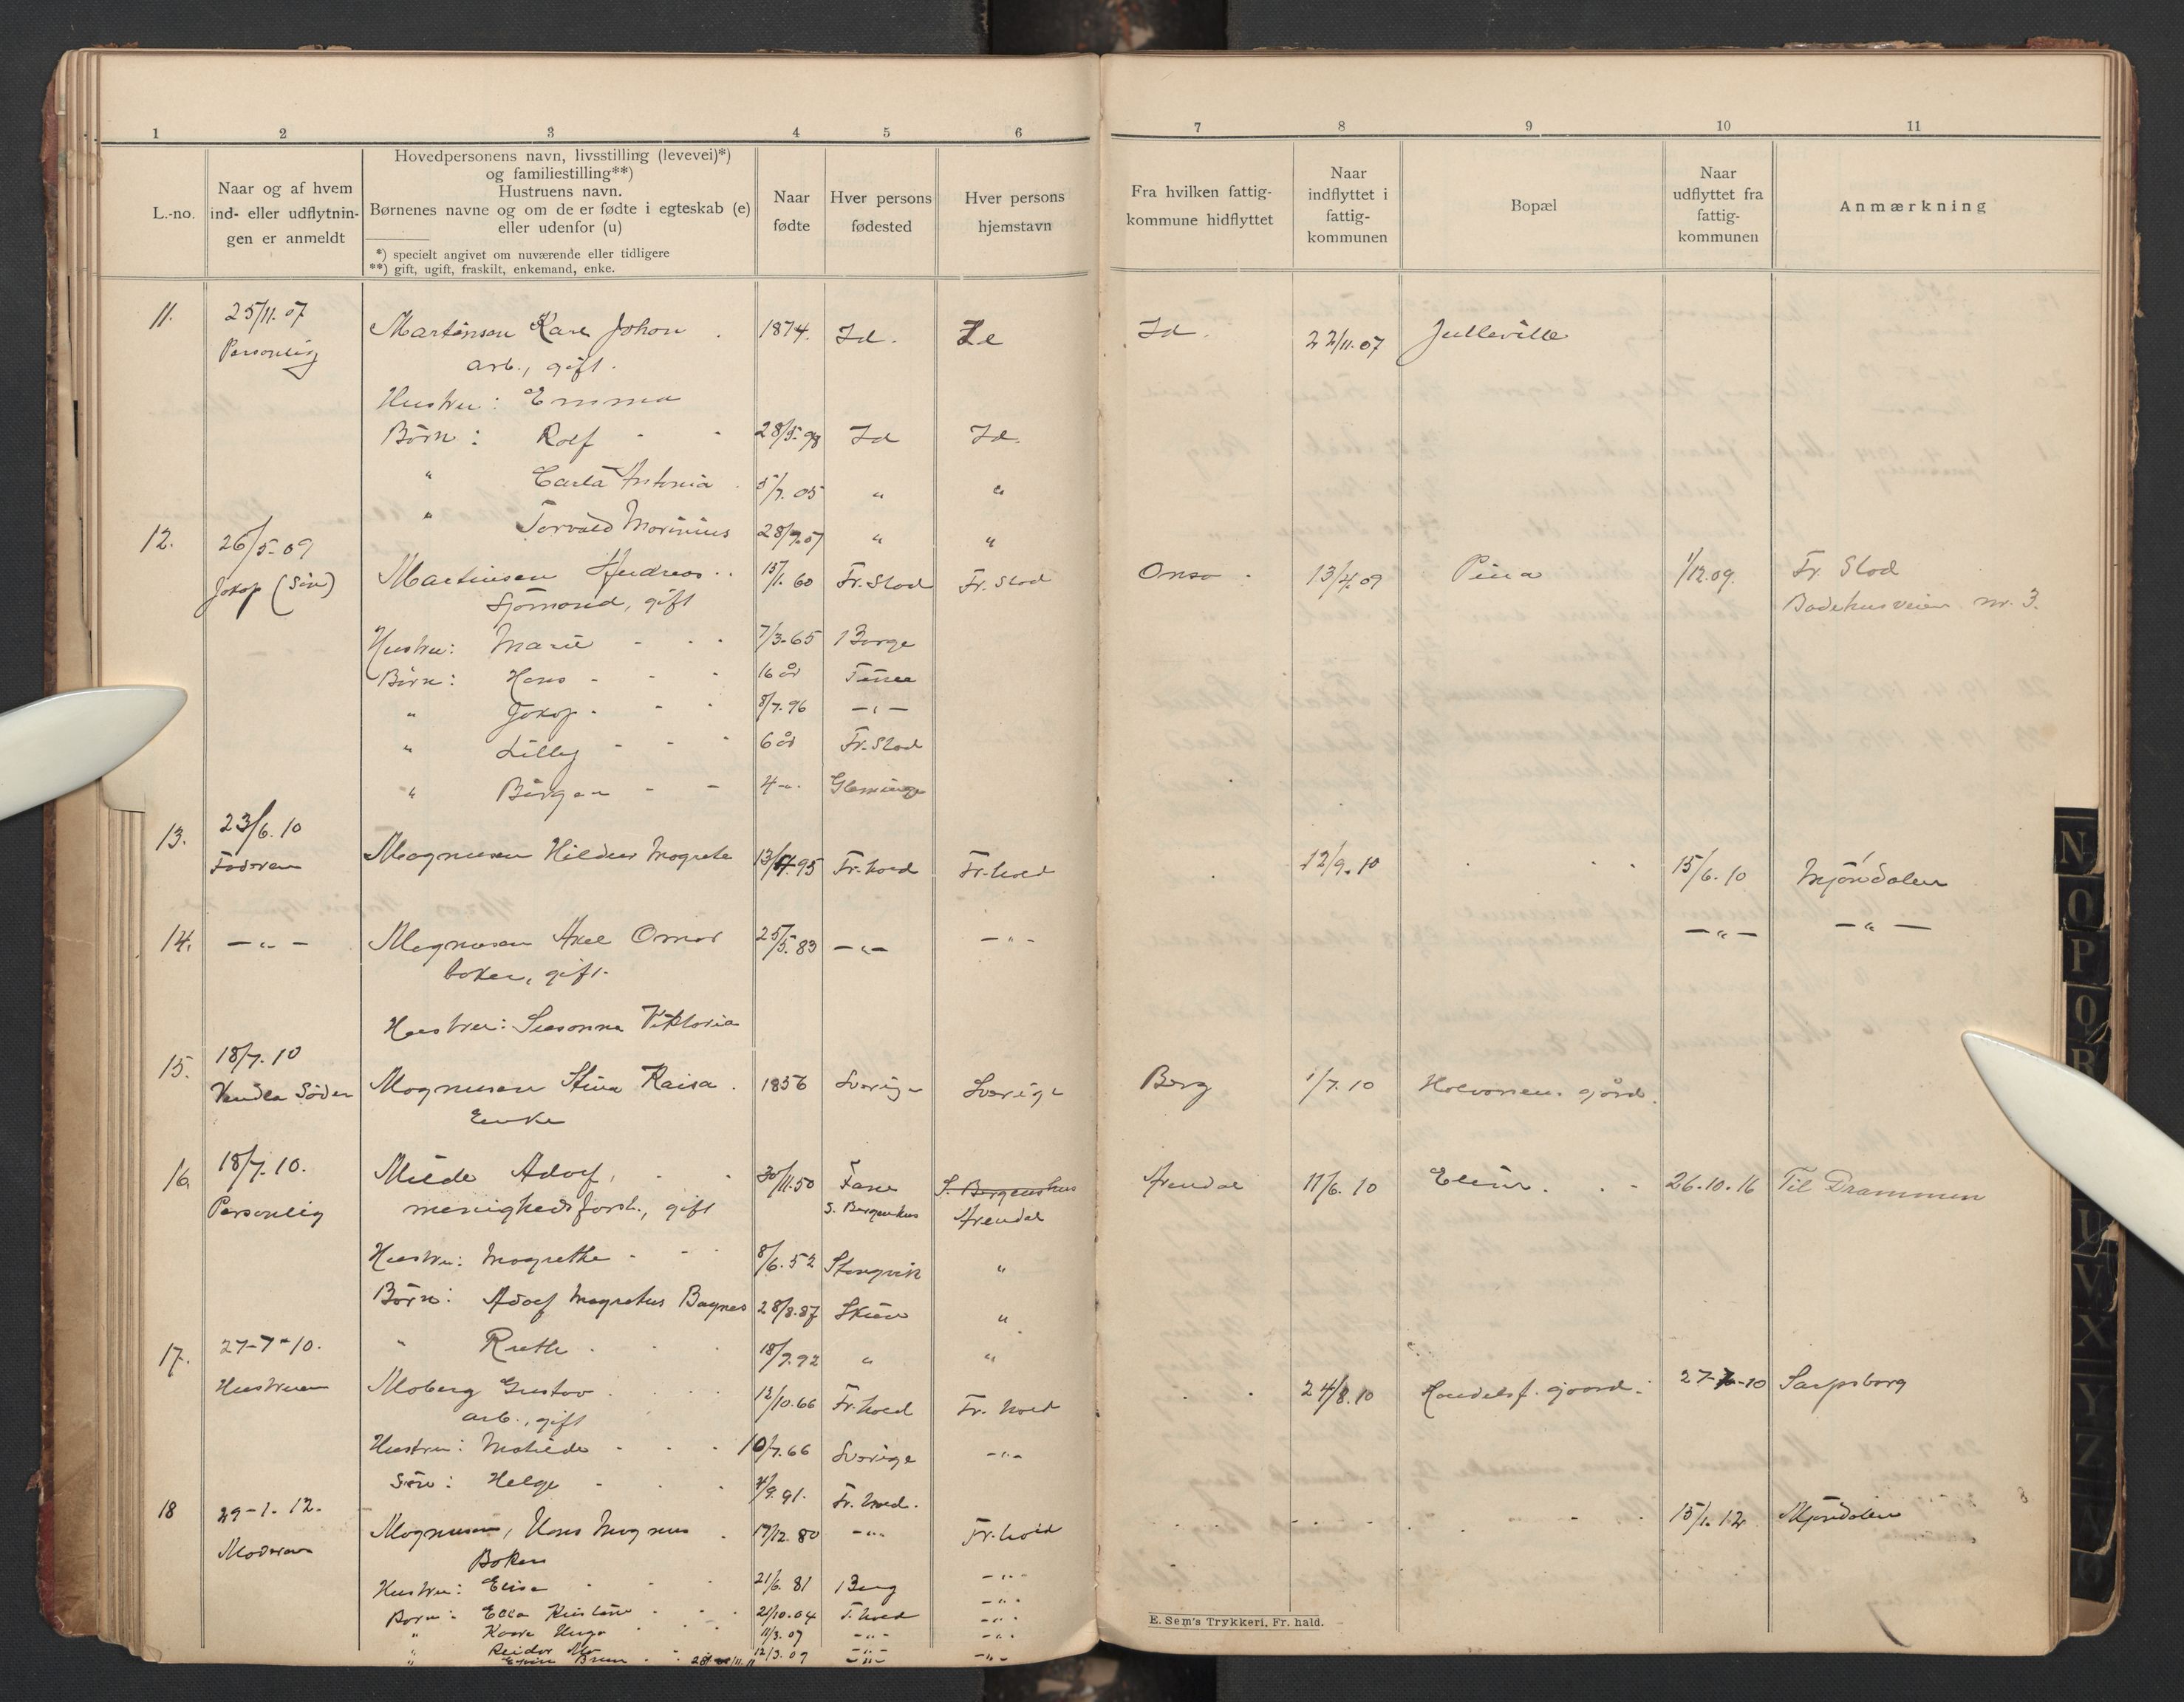 1 2 3 4 5 6 7 8 9 10 11
L.-no.
Naar og af hvem
ind- eller udflytnin-
gen er anmeldt
Hovedpersonens navn, livsstilling (levevei)*)
og familiestilling**)
Hustruens navn.
Børnenes navne og om de er fødte i egteskab (e)
eller udenfor (u)
*) specielt angivet om nuværende eller tidligere
**) gift, ugift, fraskilt, enkemand, enke.
Naar
fødte
Hver persons
fødested
Hver persons
hjemstavn
Fra hvilken fattig-
kommune hidflyttet
Naar
indflyttet i
fattig-
kommunen
Bopæl
Naar
udflyttet fra
fattig-
kommunen
Anmærkning
11. 25/11.07 Martinsen Karl Johan 1874. Id. Id Id. 22/11.07 Julleville
Personlig arb., gift.
Hustru: Emma
Børn: Rolf 28/5.98 Id Id.
" Carla Antonia 5/7.05 " "
" Torvald Marinius 28/7.07 " "
12. 26/5-09 Martinsen Andreas 15/1.60 Fr.Stad Fr.Stad Onsø 13/4.09 1/12.09. Fr. Stad
Jakop (Søn) Sjømand, gift Badehusveien nr. 3.
Hustru: Marie 7/3-65 Borge
Børn: Hans 16 år
" Jakop 8/7.96 -"-
" Lilly 6 år Fr.Stad
" Birger 4 -"- Glemminge
13. 23/6.10 Magnusen Hildur Magrete 13/4.95 Fr.hald Fr.hald 12/9.10 15/6.10 Mjøndalen
Faderen
14. -"- Magnusen Axel Omar 25/5.83 -"- -"- -"- -"-
baker, gift.
Hustru: Susanna Viktoria
15. 18/7.10 Magnusen Stina Kaisa 1856 Sverige Sverige Berg 1/7.10 Halvorsen. gård.
Vendla Söder Enke
16. 18/7.10. Milde Adolf, 30/11.50 Fane S. Bergenshus Arendal 11/6.10 26.10.16 Til Drammen
Personlig menighedsforst., gift S. Bergenhus Arendal
Hustru: Magrethe 8/6.52 Stangvik "
Børn: Adolf Magnetus Bagnes 28/8.87 Skien "
" Ruth 18/9.92 " "
17. 27-7-10. Moberg Gustav 12/10.66 Fr.hald Fr.hald 24/8.10 Handelsf. gaard 27-7-10 Sarpsborg
Hustruen arb., gift
Hustru: Matilde 10/7.66 Sverige -"-
Søn: Helge 4/9.91. Fr.hald.
18 29-1.12. Magnusen, Hans Magnus 17/12.80 -"- Fr.hald 15/1.12 Mjøndalen
Moderen Baker
Hustru: Elise 21/6.81 Berg -"-
Børn: Ella Kristine 21/10.04 F.hald -"-
" Kaare Hugo 11/3.07 -"- -"-
" Reidar 12/3.09 -"- -"-
" Brun -"- -"-
E. Sem's Trykkeri, Fr. hald.
N
O
P
Q
R
U
V
X
Y
Z